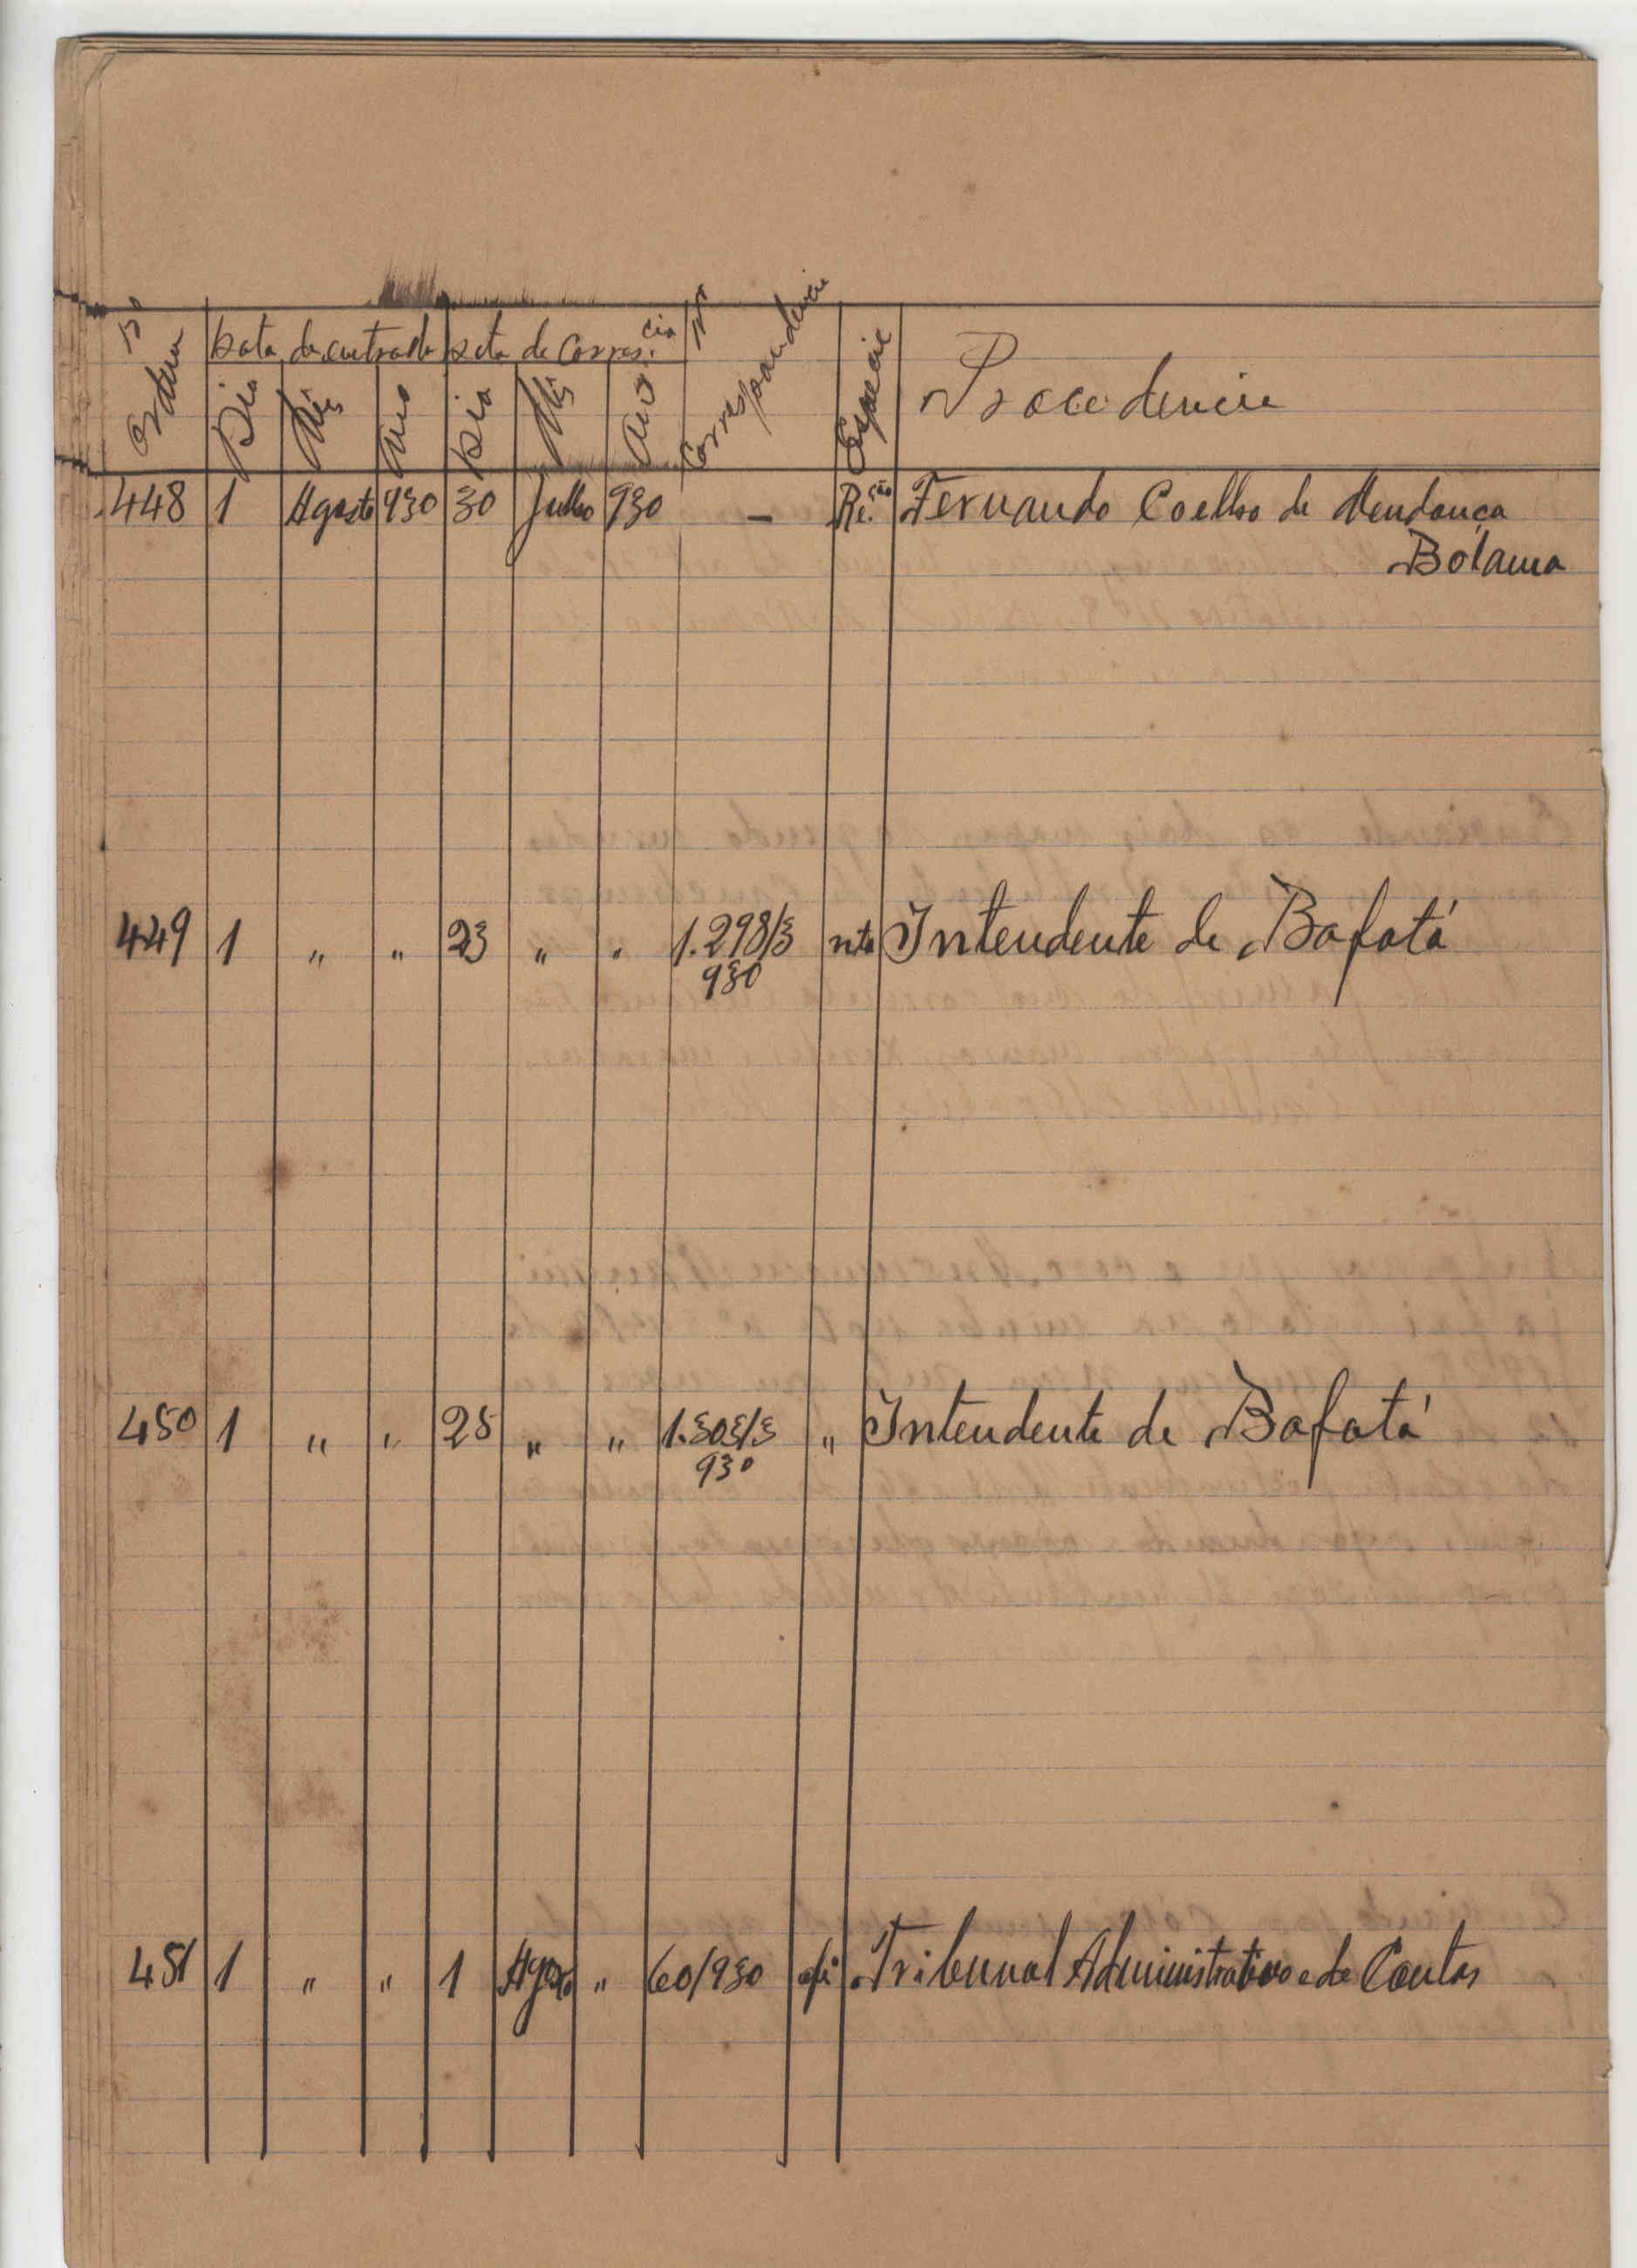 Nº Ordem | Data da entrada | Data de corres.cia | Nº Correspondencia | Especie | Procedencia
Dia | Mês | Ano | Dia | Mês | Ano
448 | 1 | Agosto | 930 | 30 | Julho | 930 | - | Re.ção | Fernando Coelho de Mendonça
Bolama
449 | 1 | " | " | 23 | " | " | 1.298/3 | nta | Intendente de Bafatá
930
450 | 1 | " | " | 25 | " | " | 1.303/3 | " | Intendente de Bafatá
930
451 | 1 | " | " | 1 | Agosto | " | 60/930 | ofi | Tribunal Administrativo e de Contas